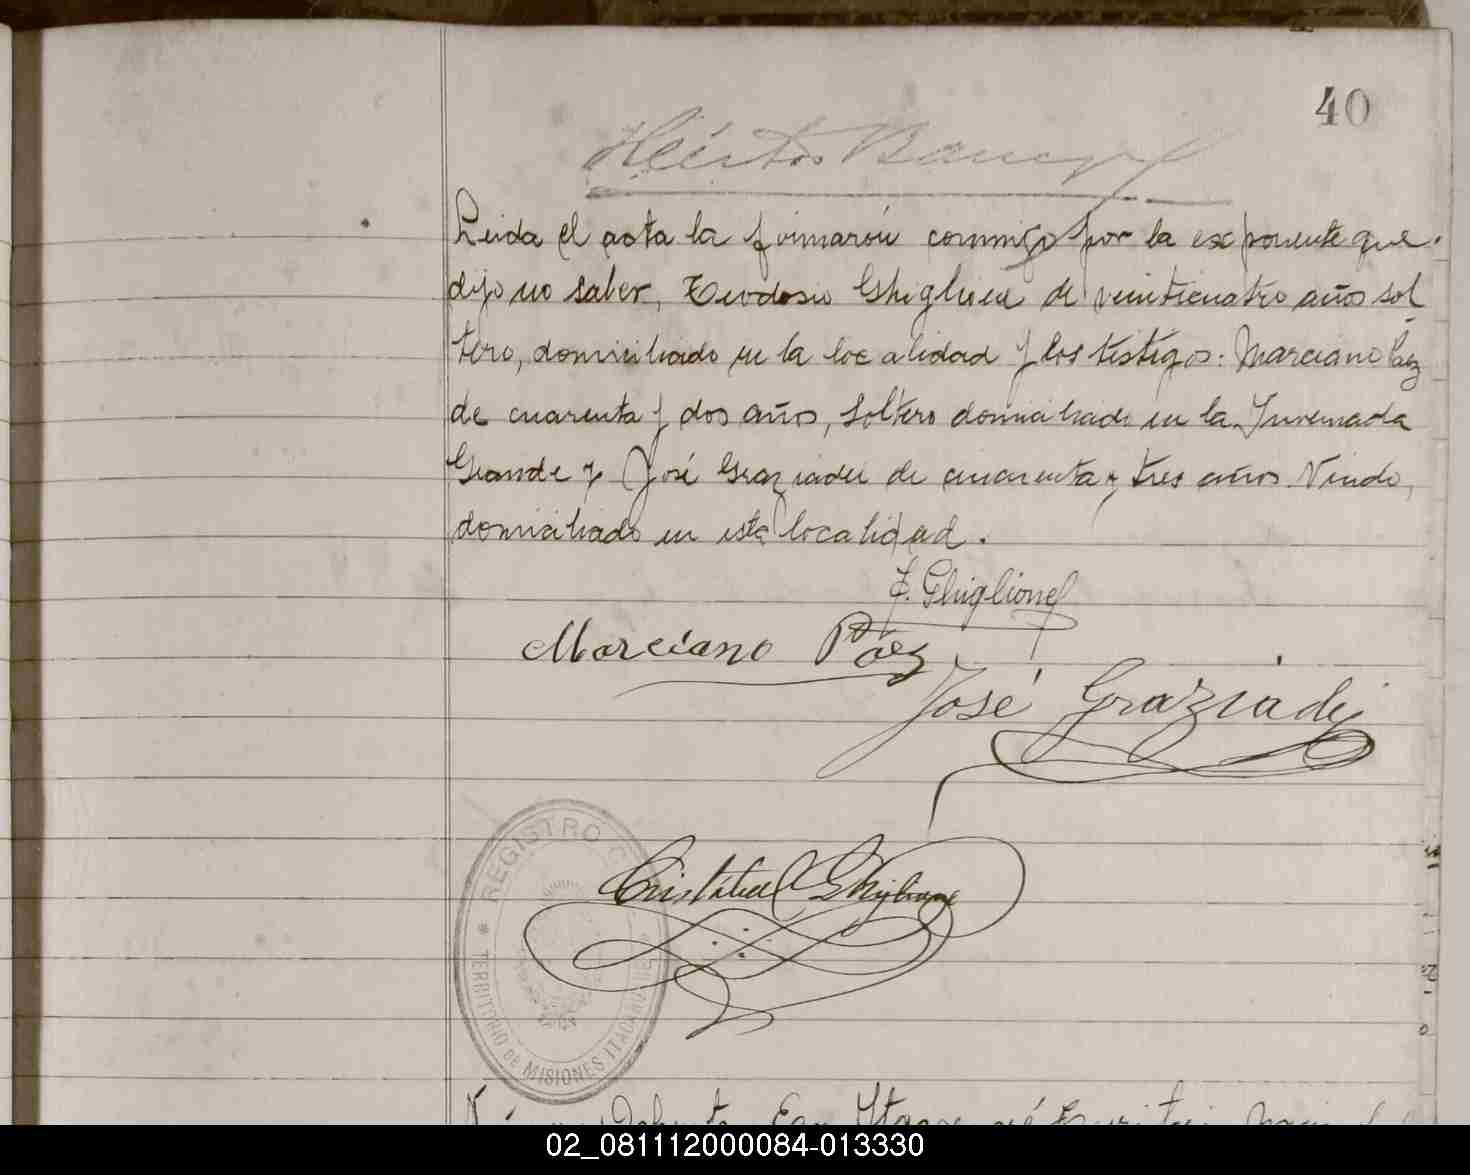 40
Leida el acta la firmarón conmigo por la exponente que
dijo no saber, Teodosio Ghiglione de veinticuatro años sol
tero, domiciliado en la localidad y los testigos: Marciano Paez
de cuarenta y dos años, soltero domiciliado en la Invernada
Grande y José Graziadei de cuarenta y tres años Viudo,
domiciliado en esta localidad.
T. Ghiglione
Marciano Páez
José Graziadei
Cristóbal Ghiglione
REGISTRO C
TERRITORIO DE MISIONES ITACARUARE
02_081112000084-013330